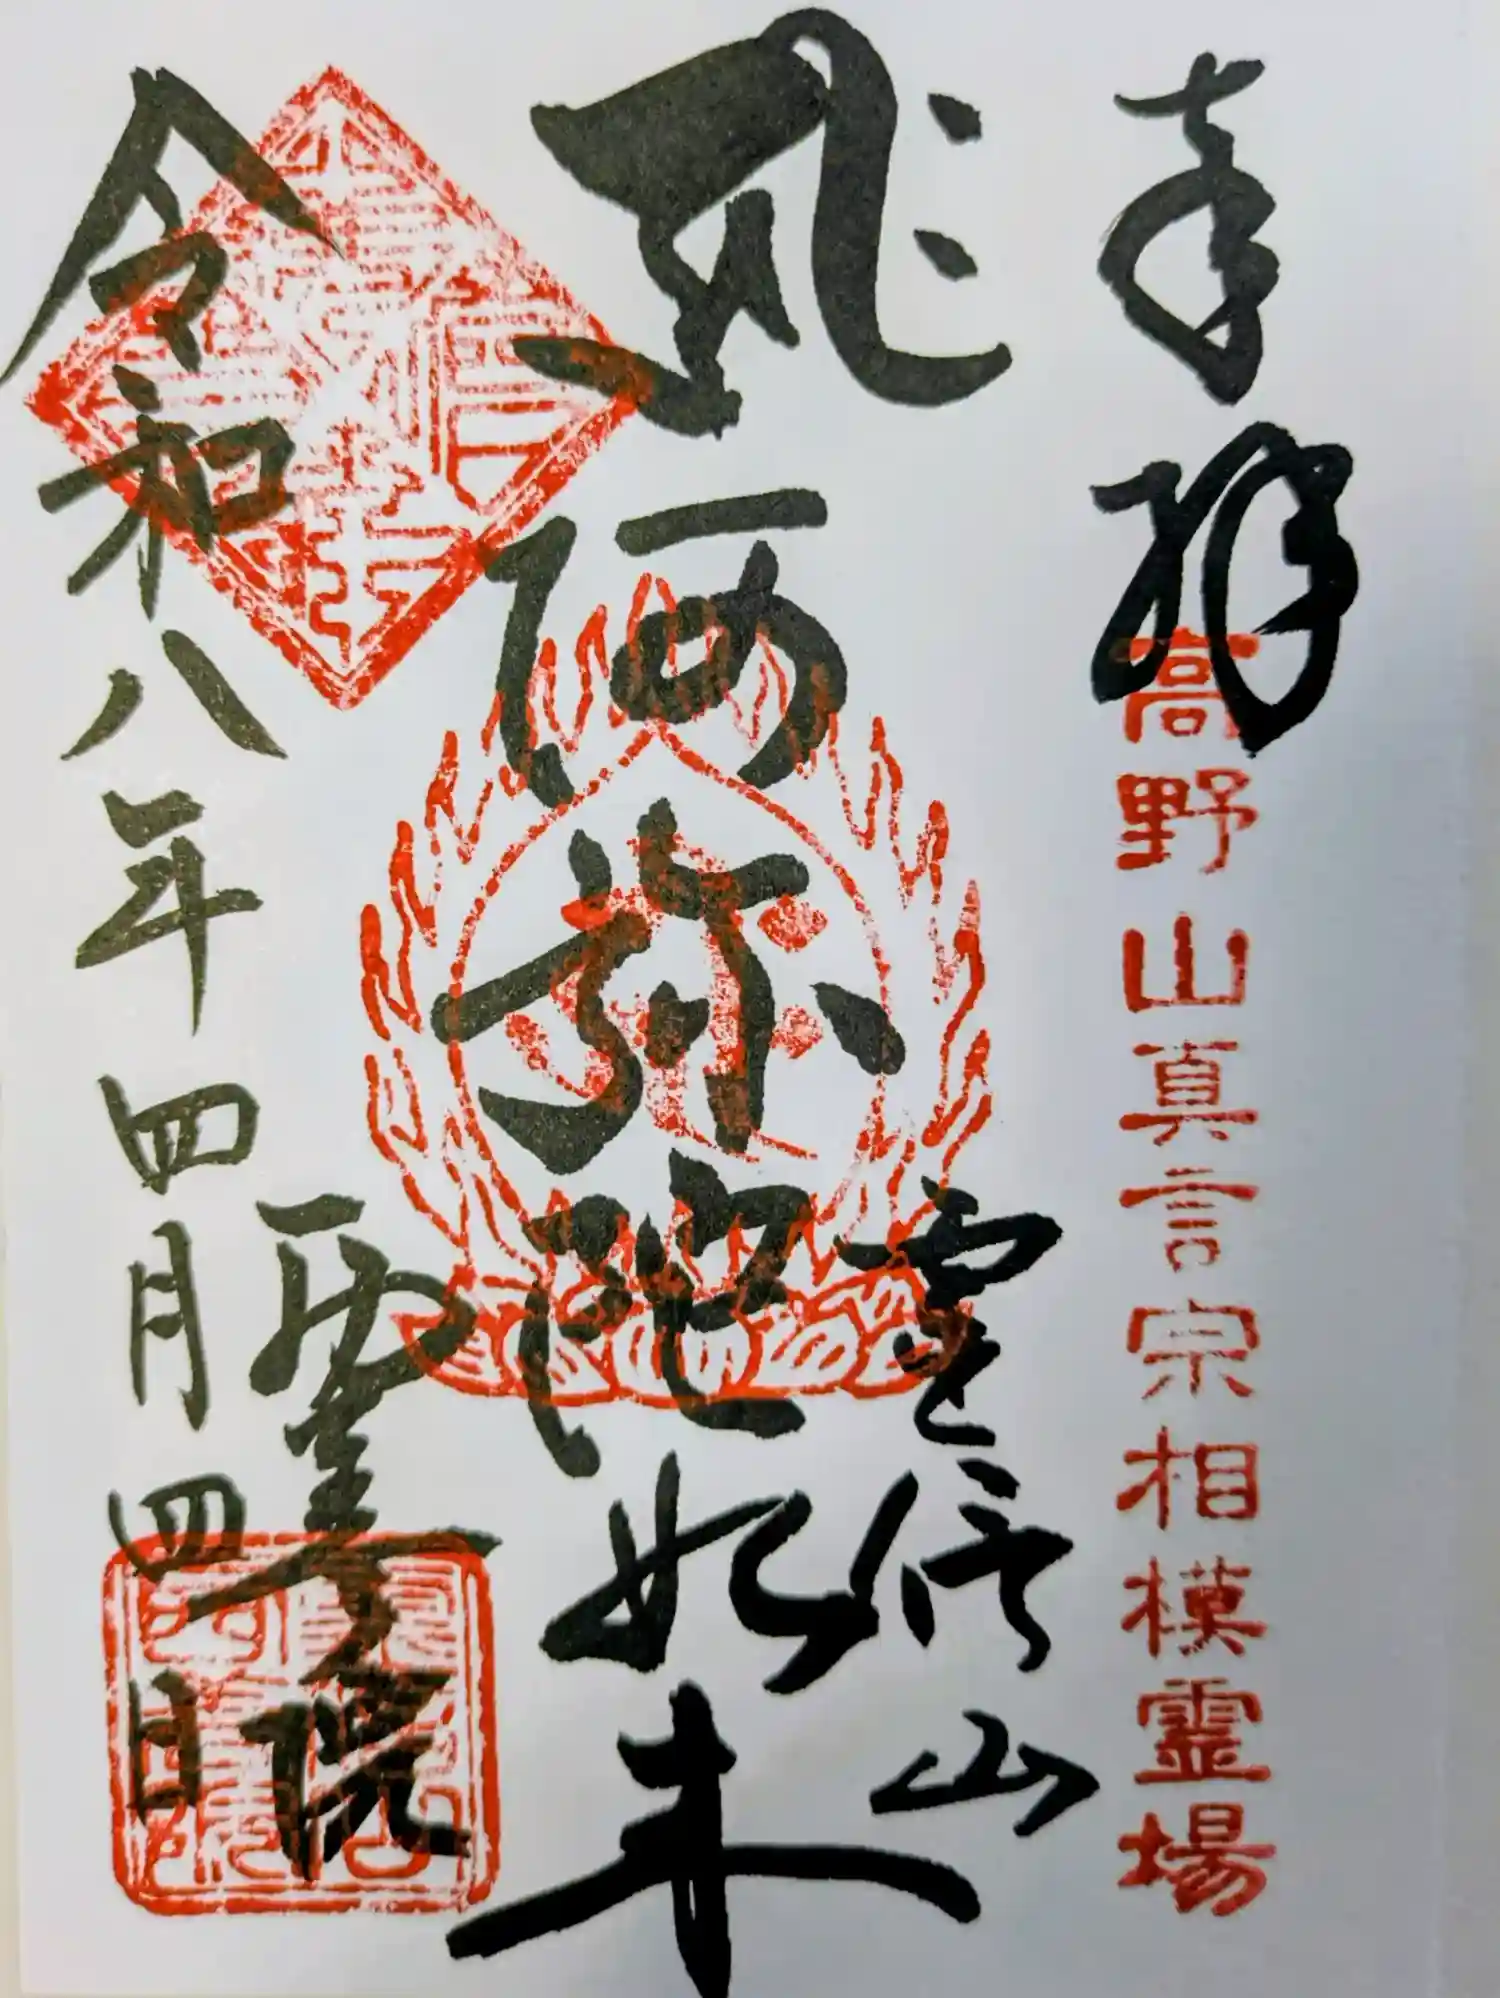 奉拝
高野山真言宗相模霊場
𑖮𑖿𑖨𑖱𑖾
阿弥陀如来
霊信山
院
令和八年四月四日